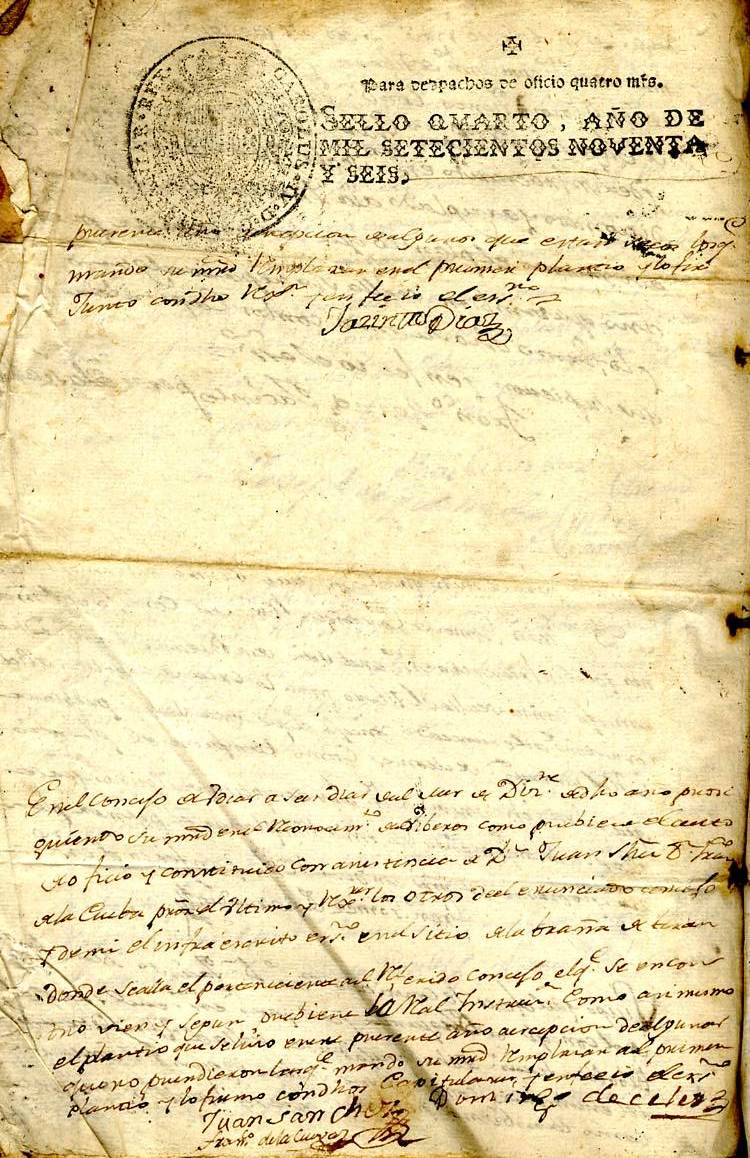 ✠
Para despachos de oficio quatro mrs.
SELLO QVARTO, AÑO DE
MIL SETECIENTOS NOVENTA
Y SEIS,
CAROLUS IV D G
HISPANIAR REX
presente año que estan secos los q.
mando su mrd Remplazar en el primer plantio y lo firmo
Junto con dho Rexr. y en fee io el essno
Jazinto Diaz
En el Conzejo de a seis dias del mes de Dizre. de dho año prosi
guiendo su mrd en el Reconocimto. de Viberos como prebiene el auto
de oficio y constituido con asistencia de Dn. Juan Shez Dn. Franco
de la Cueba pror. el Ultimo y Rexres los otros del enunciado conzejo
y de mi el infraescrito essno en el sitio de la braña de teran
donde se alla el perteneciente al Referido Conzejo el q. se encon
tro vien y segun prebiene la Real Instruzn. Como asimismo
el plantio que se hizo en este presente año a ecepcion de algunos
que no prendieron los q. mando su mrd Remplazar al primer
plantio y lo firmo con dhos Capitulares, y en fee io el essno
Juan Sanchez
Domingo de celis
Franco de la Cueva